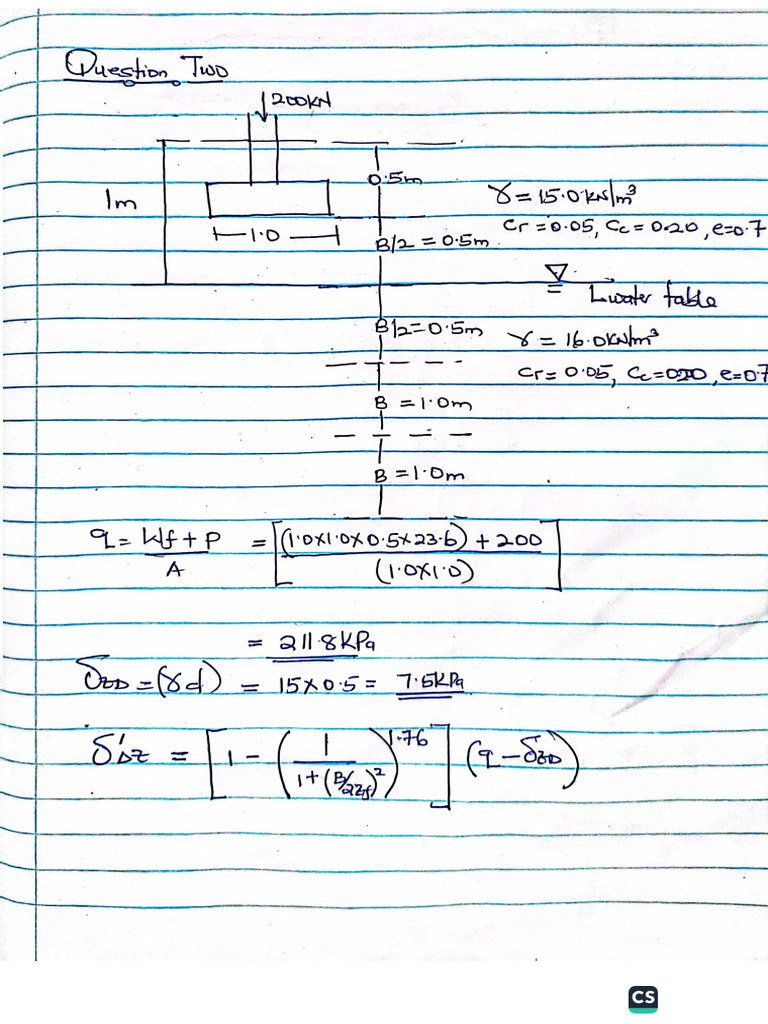 Question Two
200KN
0.5m
1m
γ = 15.0 kN/m³
1.0
Cr = 0.05, Cc = 0.20, e = 0.7
B/2 = 0.5m
water table
B/2 = 0.5m
γ = 16.0 kN/m³
Cr = 0.05, Cc = 0.20, e = 0.7
B = 1.0m
B = 1.0m
q = Wf + P / A = [(1.0X1.0X0.5X23.6) + 200 / (1.0X1.0)]
= 211.8KPa
δzD = (γd) = 15X0.5 = 7.5KPa
δ'Δz = [1 - (1 / 1 + (B/2Zf)²)^1.76] (q - δzD)
CS